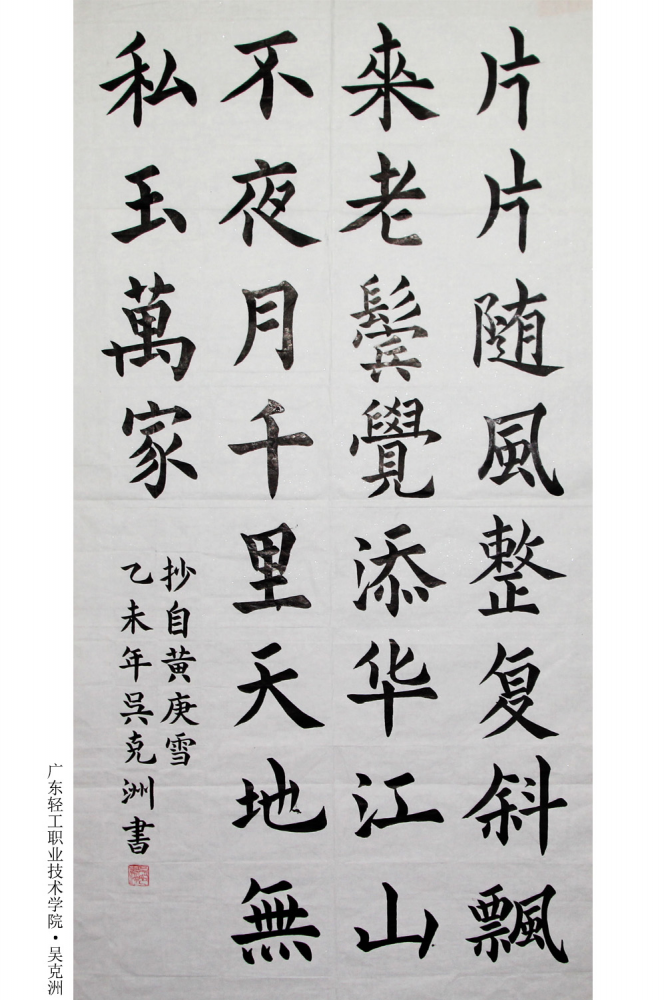 片片随風整复斜飄
來老鬓覺添华江山
不夜月千里天地無
私玉萬家
抄自黄庚雪
乙未年吴克洲書
广东轻工职业技术学院·吴克洲